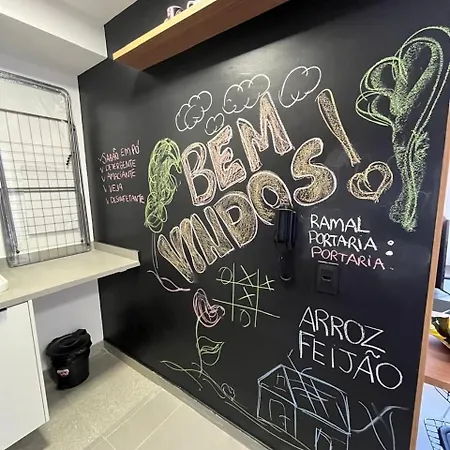 ✓ SABÃO EM PÓ
✓ DETERGENTE
✓ AMACIANTE
✓ VEJA
✓ DESINFETANTE
BEM
VINDOS!
RAMAL
PORTARIA:
PORTARIA.
ARROZ
FEIJÃO